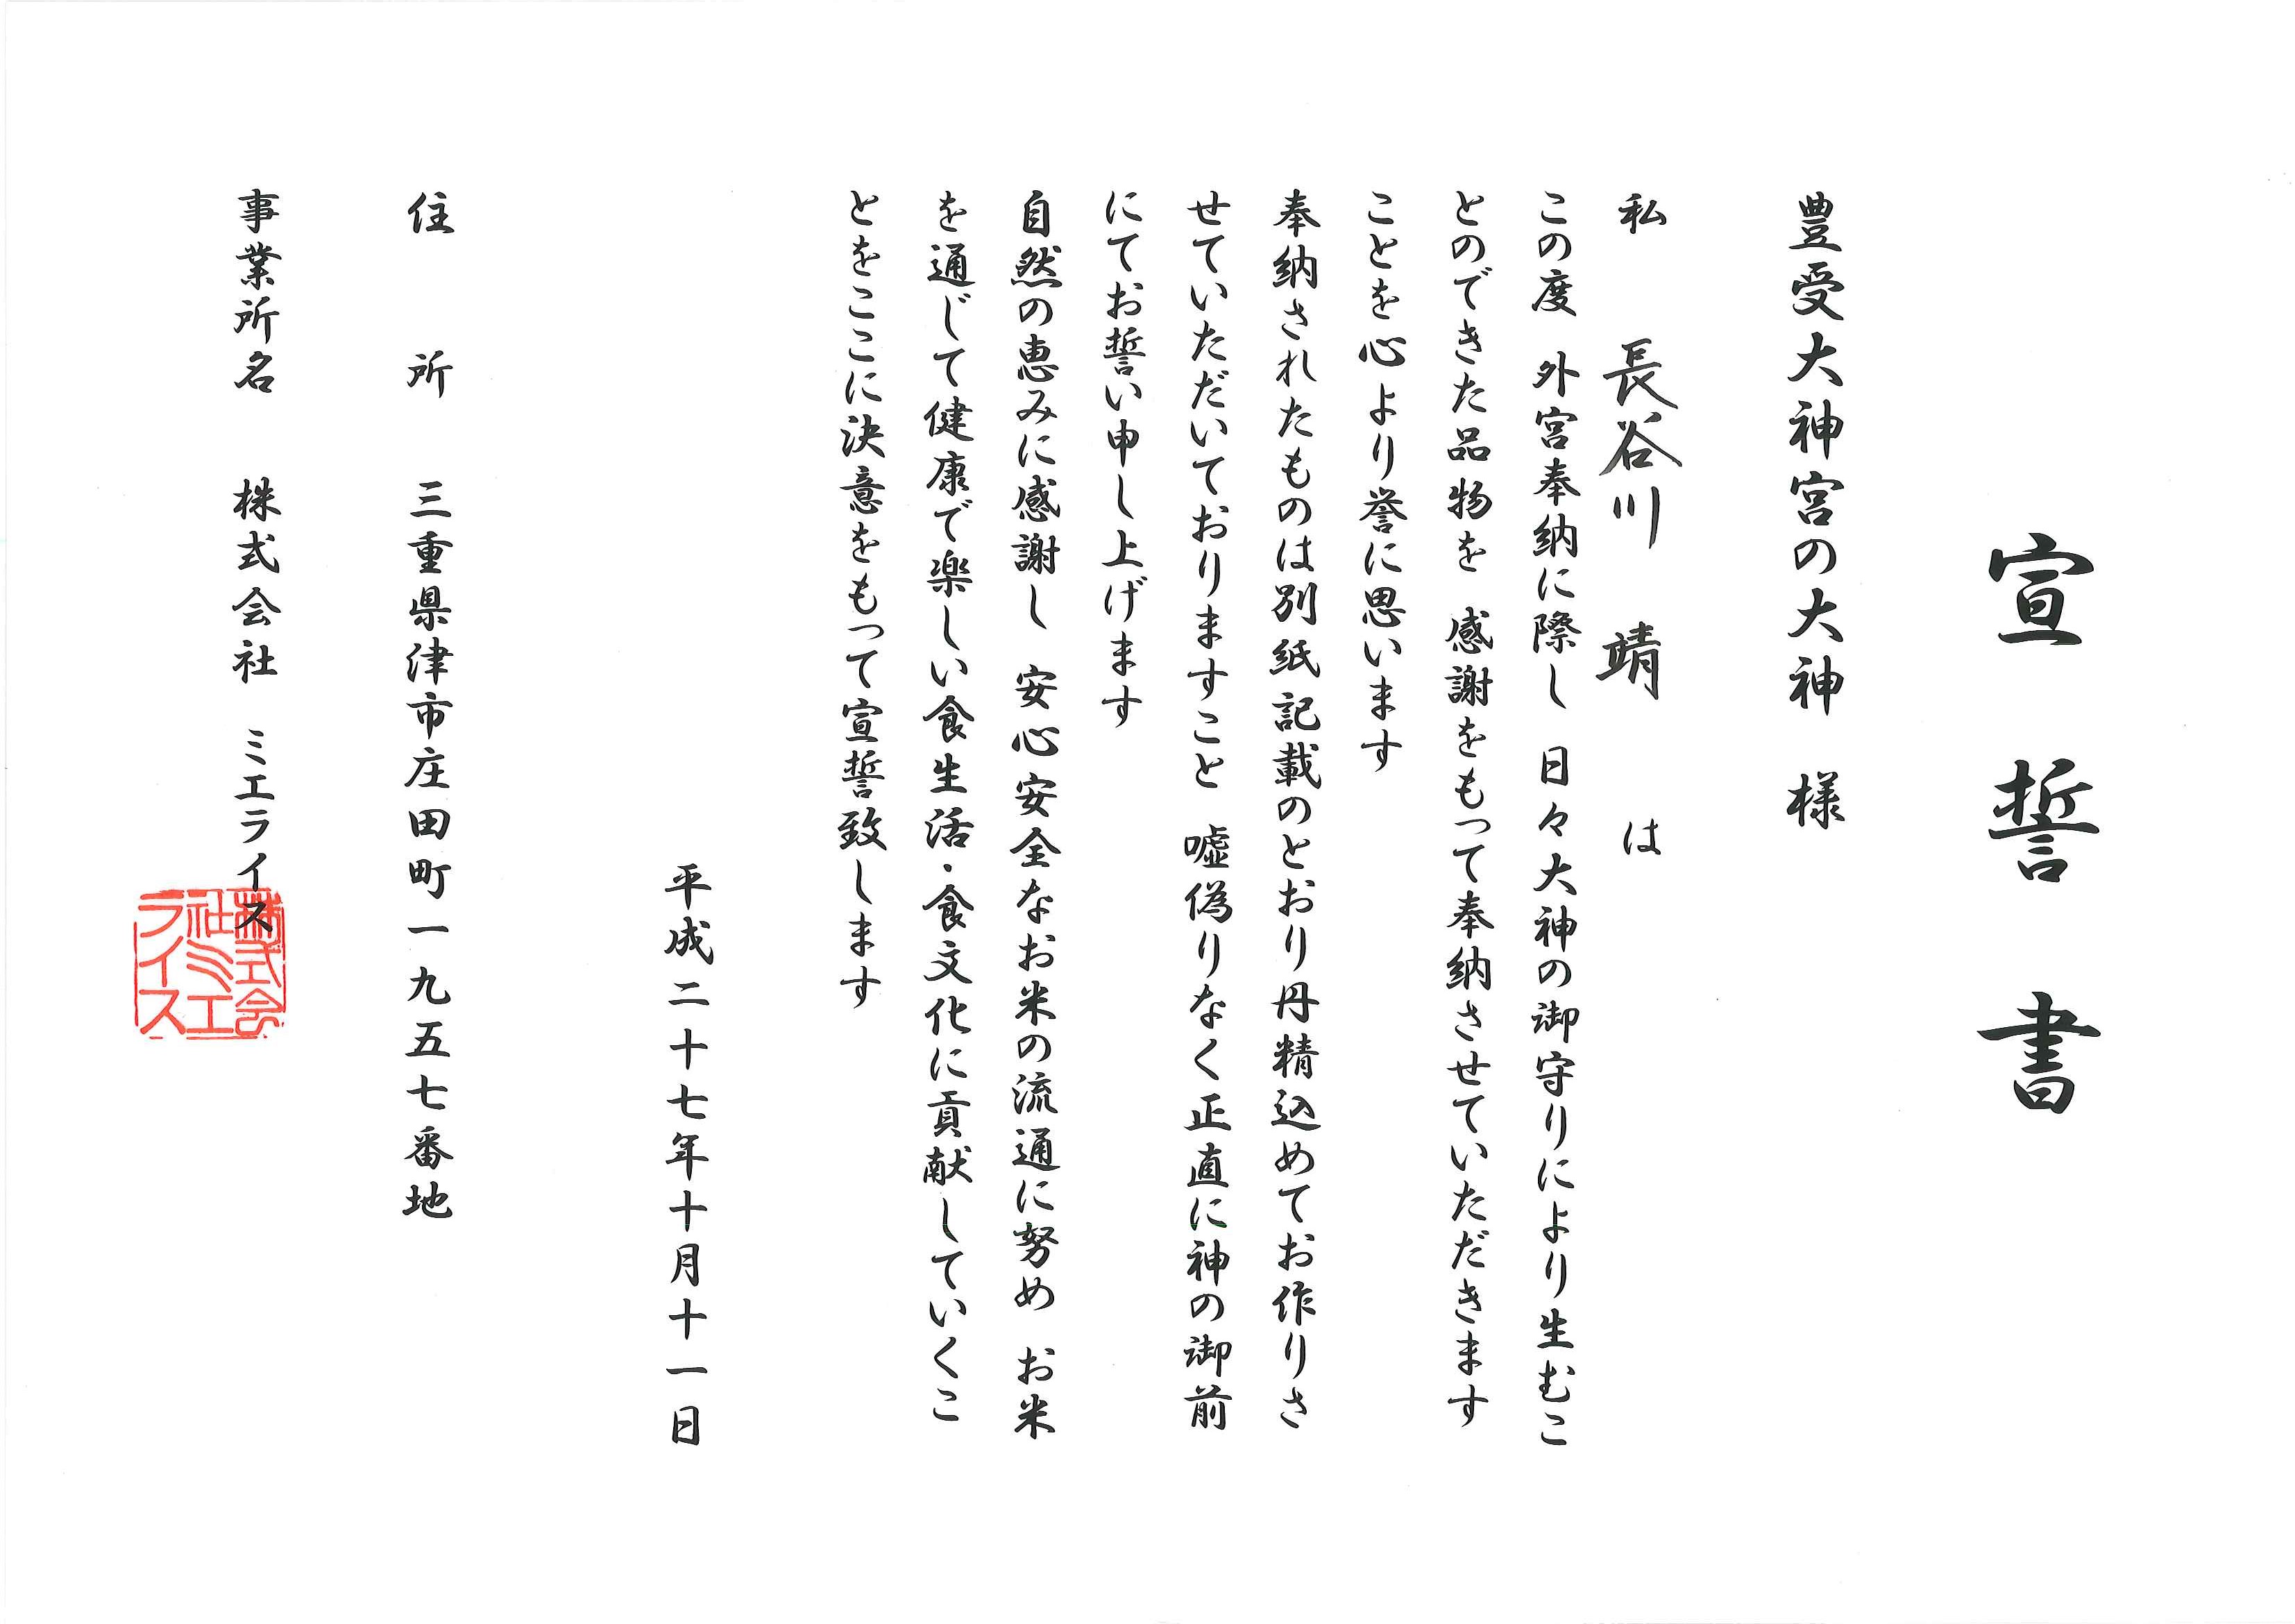 宣誓書
豊受大神宮の大神 様
私 長谷川 靖 は
この度 外宮奉納に際し 日々大神の御守りにより生むこ
とのできた品物を 感謝をもって奉納させていただきます
ことを心より誉に思います
奉納されたものは別紙記載のとおり丹精込めてお作りさ
せていただいておりますこと 嘘偽りなく正直に神の御前
にてお誓い申し上げます
自然の恵みに感謝し 安心安全なお米の流通に努め お米
を通じて健康で楽しい食生活・食文化に貢献していくこ
とをここに決意をもって宣誓致します
平成二十七年十月十一日
住所 三重県津市庄田町一九五七番地
事業所名 株式会社 ミエライス
株式会
社ミエ
ライス